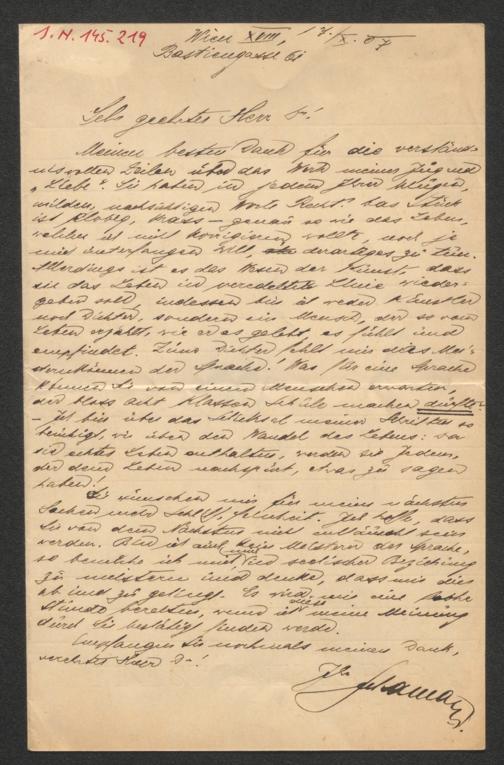 J.N. 145.219
Wien XVIII, 17./X. 07
Bastiengasse 61
Sehr geehrter Herr Dr!
Meinen besten Dank für die verständ-
nisvollen Zeilen über das Werk meiner Jugend
"Liebe". Sie haben in jedem Ihrer klugen,
milden, nachsichtigen Worte Recht. Das Stück
ist klobig, krass – genau so wie das Leben,
welches ich nicht korrigieren wollte, noch je
mich unterfangen will, derartiges zu tun.
Allerdings ist es das Wesen der Kunst, dass
sie das Leben in veredelter Linie wieder-
geben soll, indessen bin ich weder Künstler
noch Dichter, sondern ein Mensch, der so vom
Leben erzählt, wie er es gelebt, es fühlt und
empfindet. Zum Dichter fehlt mir das Mei-
sterkönnen der Sprache. Was für eine Sprache
können Sie von einem Menschen erwarten,
der bloss acht Klassen Schule machen durfte. –
– Ich bin über das Schicksal meiner Schriften so
beruhigt, wie über den Wandel des Lebens: so
sie echtes Leben enthalten, werden sie Jedem,
der dem Leben nachspürt, etwas zu sagen
haben!
Sie wünschen mir für meine nächsten
Sachen mehr Schliff, Schönheit. Ich hoffe, dass
Sie von dem Nächsten nicht enttäuscht sein
werden. Bin ich auch kein Meister der Sprache,
so bemühe ich mich in seelischer Beziehung
zu meistern und denke, dass mir dies
ab und zu gelingt. Es wird mir eine frohe
Stunde bereiten, wenn ich diese meine Meinung
durch Sie bestätigt finden werde.
Empfangen Sie nochmals meinen Dank,
verehrter Herr Dr!
Ihr